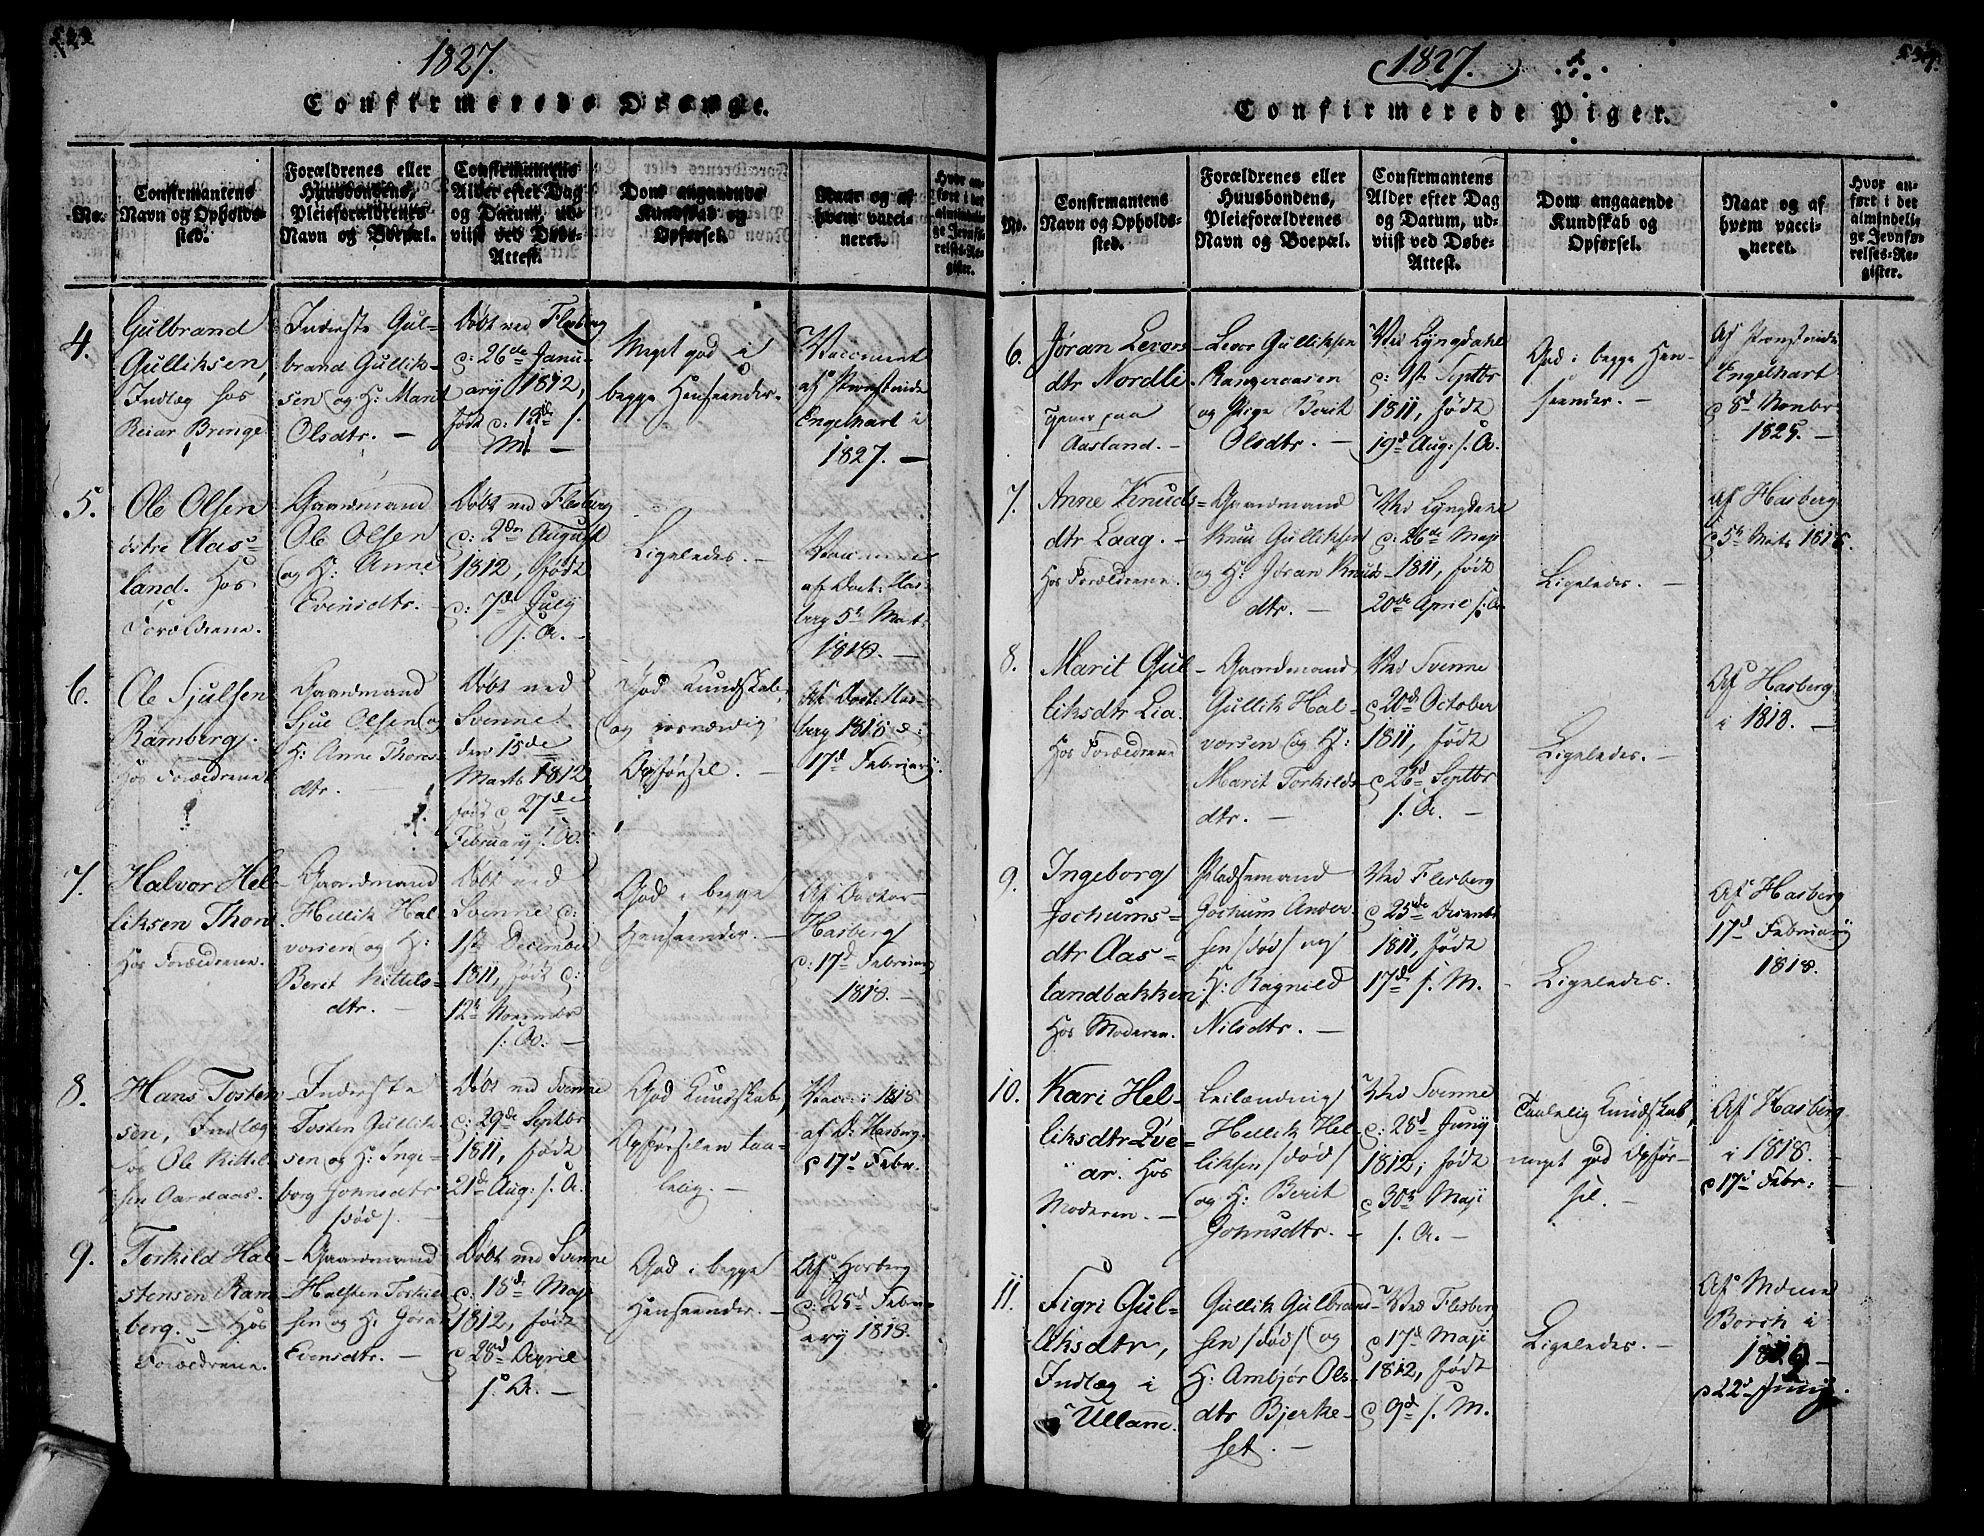 1827.
Confirmerede Drenge.
No.
Confirmantens
Navn og Opholds-
sted.
Forældrenes eller
Huusbondens,
Pleieforældrenes
Navn og Boepæl.
Confirmantens
Alder efter Dag
og Datum, ud-
viist ved Døbe-
Attest.
Dom angaaende
Kundskab og
Opførsel.
Naar og af
hvem vacci-
neret.
Hvor an-
ført i det
almindeli-
ge Jevnfø-
relses-Re-
gister.
4.
Gulbrand
Gulliksen,
Indlæg hos
Reiar Bringe
Inderste Gul-
brand Gullik-
sen og H: Marit
Olsdtr. —
Døbt ved Flesberg
d: 26de Janu-
ary 1812,
født d: 12te s.
M. —
Meget god i
begge Henseender.
Vaccineret
af Provstinde
Engelhart i
1827. —
5.
Ole Olsen
østre Aas-
land. Hos
Forældrene.
Gaardmand
Ole Olsen
og H: Anne
Evensdtr. —
Døbt ved Flesberg
d: 2den August
1812, født
d: 7de July
s. A. —
Ligeledes. —
af Doct: Has-
berg 5te Mart:
1818. —
6.
Ole Sjulsen
Ramberg.
Hos Forældrene
Gaardmand
Sjul Olsen og
H: Anne Thores-
dtr. —
Døbt ved
Svenne
den 15de
Marts 1812
født d 27de
February s. A.
God Kundskab
og
Opførsel. —
Af Doct: Has-
berg 1818 d:
17de February.
7.
Halvor Hel-
liksen Thon
Hos Forældrene.
Gaardmand
Hellik Hal-
vorsen og H:
Berit Kittils-
dtr. —
Døbt ved
Svenne d:
1ste December
1811, født d:
12te November
s. A. —
God i begge
Henseender. —
Af Doctor
Hasberg
d: 17de February
1818. —
8.
Hans Tosten-
sen, Indlæg
hos Ole Kittel-
sen Aardaas.
Inderste
Tosten Gullik-
sen og H: Inge-
borg Johnsdtr
/død/. —
Døbt ved Svenne
d: 29de Septbr
1811, født
21de Aug: s. A.
God Kundskab,
Opførselen taa-
lelig. —
Vacc: i 1818
af D: Hasberg
d 17de Febr.
9.
Torkild Hal-
stensen Ram-
berg. — Hos
Forældrene.
Gaardmand
Halsten Torkil-
sen og H: Jøran
Evensdtr. —
Døbt ved Svenne
d: 18de May
1812, født
d 28de April
s. A. —
God i begge
Henseender. —
Af Hasberg
d: 25de Febru-
ary 1818.
1827.
Confirmerede Piger.
No.
Confirmantens
Navn og Opholds-
sted.
Forældrenes eller
Huusbondens,
Pleieforældrenes
Navn og Boepæl.
Confirmantens
Alder efter Dag
og Datum, ud-
viist ved Døbe-
Attest.
Dom angaaende
Kundskab og
Opførsel.
Naar og af
hvem vacci-
neret.
Hvor an-
ført i det
almindeli-
ge Jevnfø-
relses-Re-
gister.
6.
Jøran Levors-
dtr Nordli
tjener paa
Aasland. —
Levor Gulliksen
Rangeraasen
og Pige Berit
Olsdtr. —
Ved Lyngdahl
d: 1ste Septbr
1811, født
19de Aug: s. A.
God i begge Hen-
seender. —
Af Provstinde
Engelhart
d 8de Novbr
1825. —
7.
Anne Knuds-
dtr Laag. —
Hos Forældrene.
Gaardmand
Knu Gulliksen
og H: Jøran Knuds-
dtr. —
Ved Lyngdahl
d: 26de Maji
1811, født
20de April s. A.
Ligeledes. —
Af Hasberg
d 5te Mrts 1818.
8.
Marit Gul-
liksdtr Lia.
Hos Forældrene
Gaardmand
Gullik Hal-
vorsen og H:
Marit Torkilds-
dtr. —
Ved Svenne
d 20de October
1811, født
d 22de Septbr
s. A. —
Ligeledes. —
Af Hasberg
i 1818. —
9.
Ingeborg
Jochums-
dtr Aas-
landbakken
Hos Moderen.
Pladsemand
Jochum Ander-
sen /død/ og
H: Ragnild
Nilsdtr. —
Ved Flesberg
d 25de Decembr
1811, født
17de s. M.
Ligeledes.
Af Hasberg
17de February
1818.
10.
Kari Hel-
liksdtr Qve-
ar. Hos
Moderen. —
Leilænding
Hellik Hel-
liksen /død/
og H: Berit
Johnsdtr. —
Ved Svenne
d: 28de Juny
1812, født
d 30te Maji
s. A. —
Taalelig Kundskab,
meget god Opfør-
sel. —
Af Hasberg
i 1818. —
d 17de Febr: —
11.
Sigri Gul-
liksdtr,
Indlæg i
Ulland.
Gullik Gulbrand-
sen /død/ og
H: Ambjør Ols-
dtr Bjerke-
set. —
Ved Flesberg
d 17de Maji
1812, født
d 9de s. M.
Ligeledes. —
Borch i
d 22de Juny.